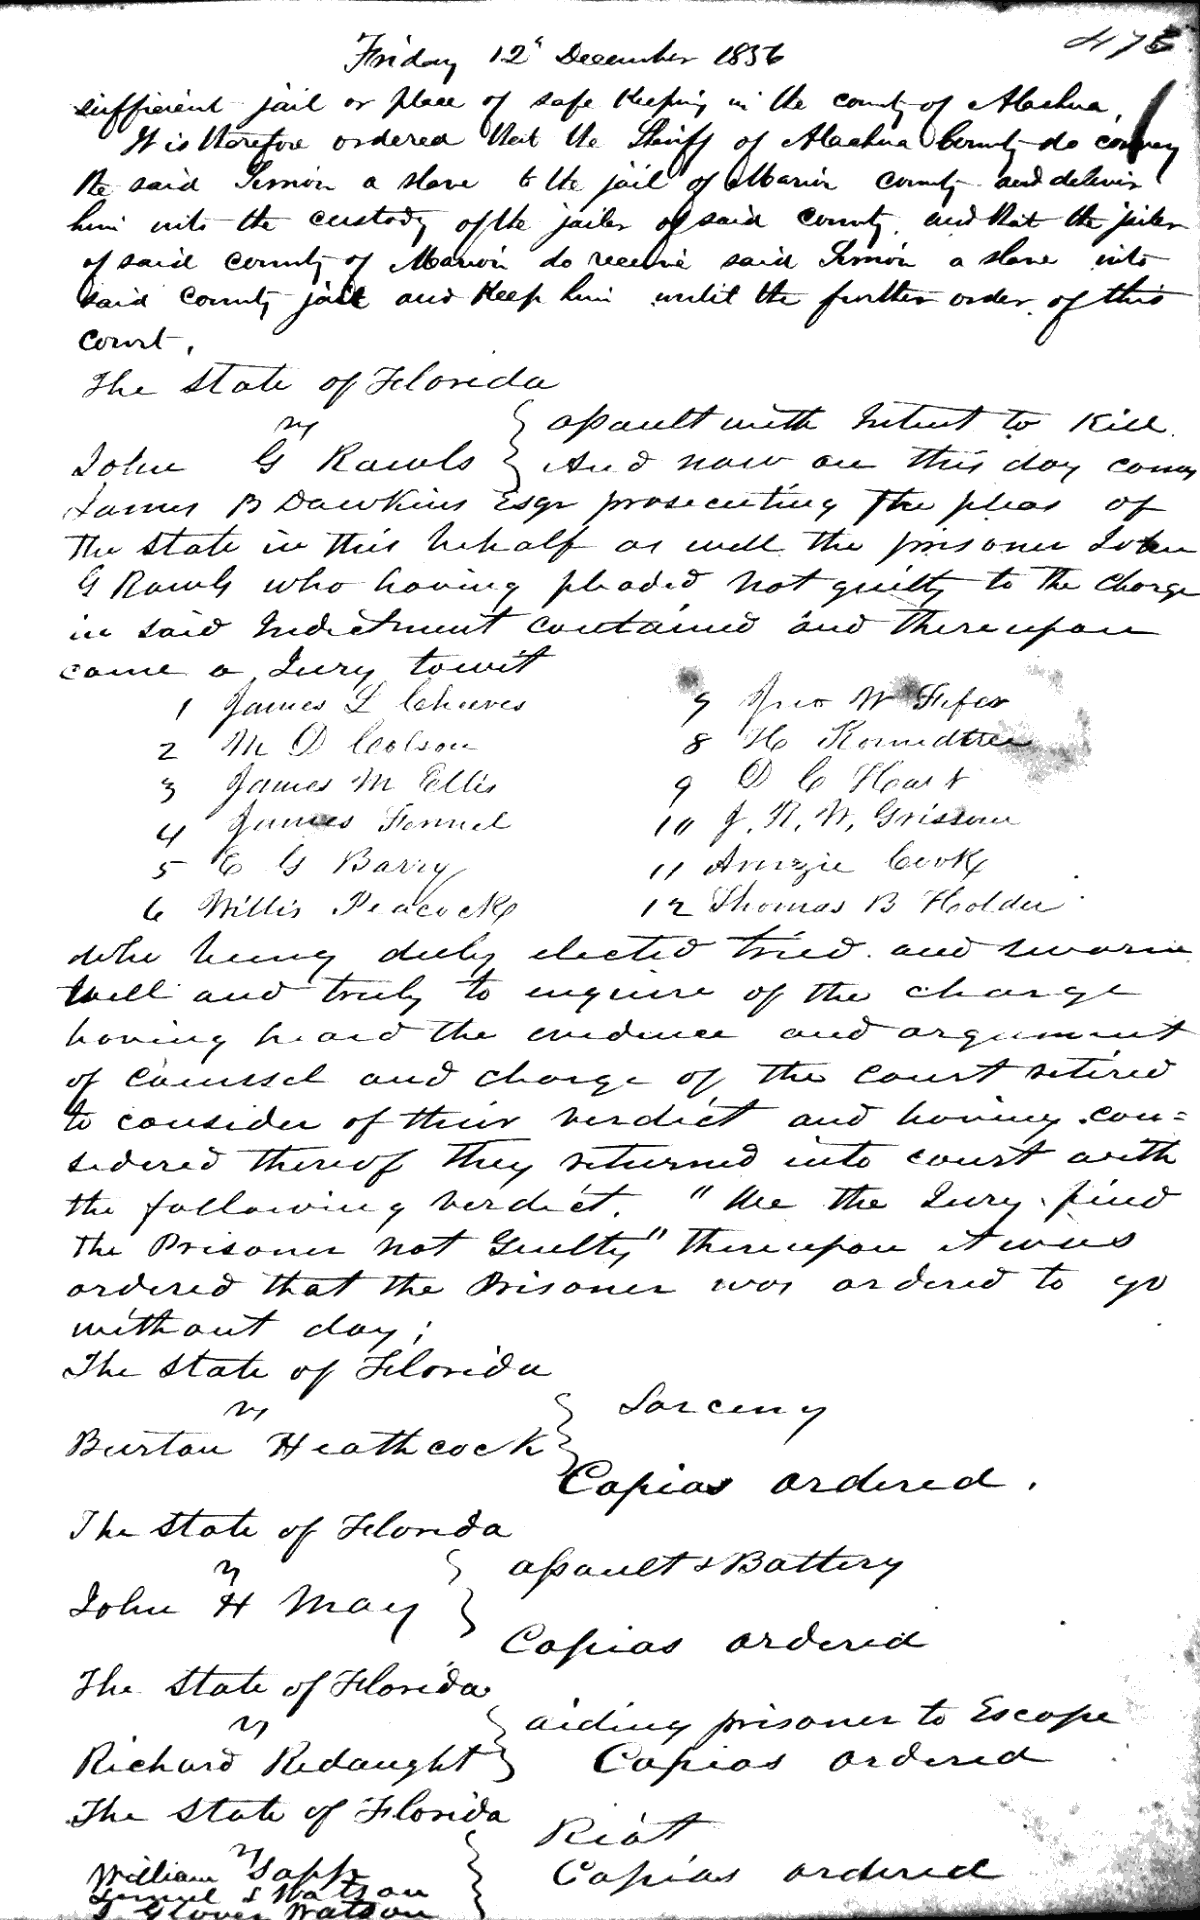 475
Friday 12" December 1856
sufficient jail or place of safe keeping in the county of Alachua,
It is therefore ordered that the Sheriff of Alachua County do convey
the said Simon a slave to the jail of Marion county and deliver
him into the custody of the jailer of said county and that the jailer
of said county of Marion do receive said Simon a slave into
said county jail and keep him until the further order of this
court.
The State of Florida
vs } assault with Intent to Kill.
John G Rawls } And now on this day comes
James B Dawkins Esqr prosecuting the pleas of
the State in this behalf as well the prisoner John
G Rawls who having pleaded not guilty to the charge
in said Indictment contained and thereupon
came a Jury towit
1 James L Cheeves 7 Jno W Fifer
2 M D Colson 8 H Roundtree
3 James M Ellis 9 D C Hart
4 James Fennel 10 J. R. W. Grissom
5 E G Barry 11 Amzie Cook
6 Willis Peacock 12 Thomas B Holder
who being duly elected tried and sworn
well and truly to enquire of the charge
having heard the evidence and argument
of counsel and charge of the court retired
to consider of their verdict and having con=
sidered thereof they returned into court with
the following verdict. "We the Jury find
the Prisoner not Guilty" thereupon it was
ordered that the Prisoner was ordered to go
without day;
The State of Florida
vs } Larceny
Burton Heathcock }
Capias ordered.
The State of Florida
vs } assault & Battery
John H May }
Capias ordered
The State of Florida
vs } aiding prisoner to Escape
Richard Redaught } Capias ordered
The State of Florida
vs } Riot
William Sapp } Capias ordered
Lemuel S Watson
J Glover Watson